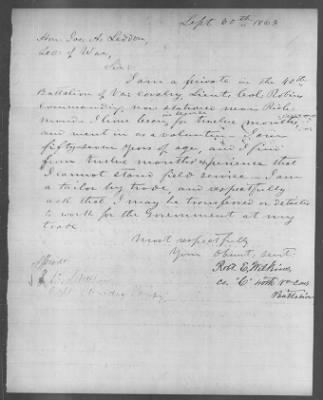 Sept 30th 1863
Hon. Jas. A. Seddon,
Sec. of War,
Sir:
I am a private in the 40th
Battalion of Va. Cavalry, Lieut. Col. Robins
Commanding, now stationed near Rich-
mond. I have been, for twelve months,
and went in as a volunteer. I am
fifty-seven years of age, and I find
from twelve months experience that
I cannot stand field service. I am
a tailor by trade, and respectfully
ask that I may be transfered or detailed
to work for the Government at my
trade.
Most respectfully
Your Obent. servt.
Robt E. Wilkins,
Co. "C" 40th Va Cav.
Battalion